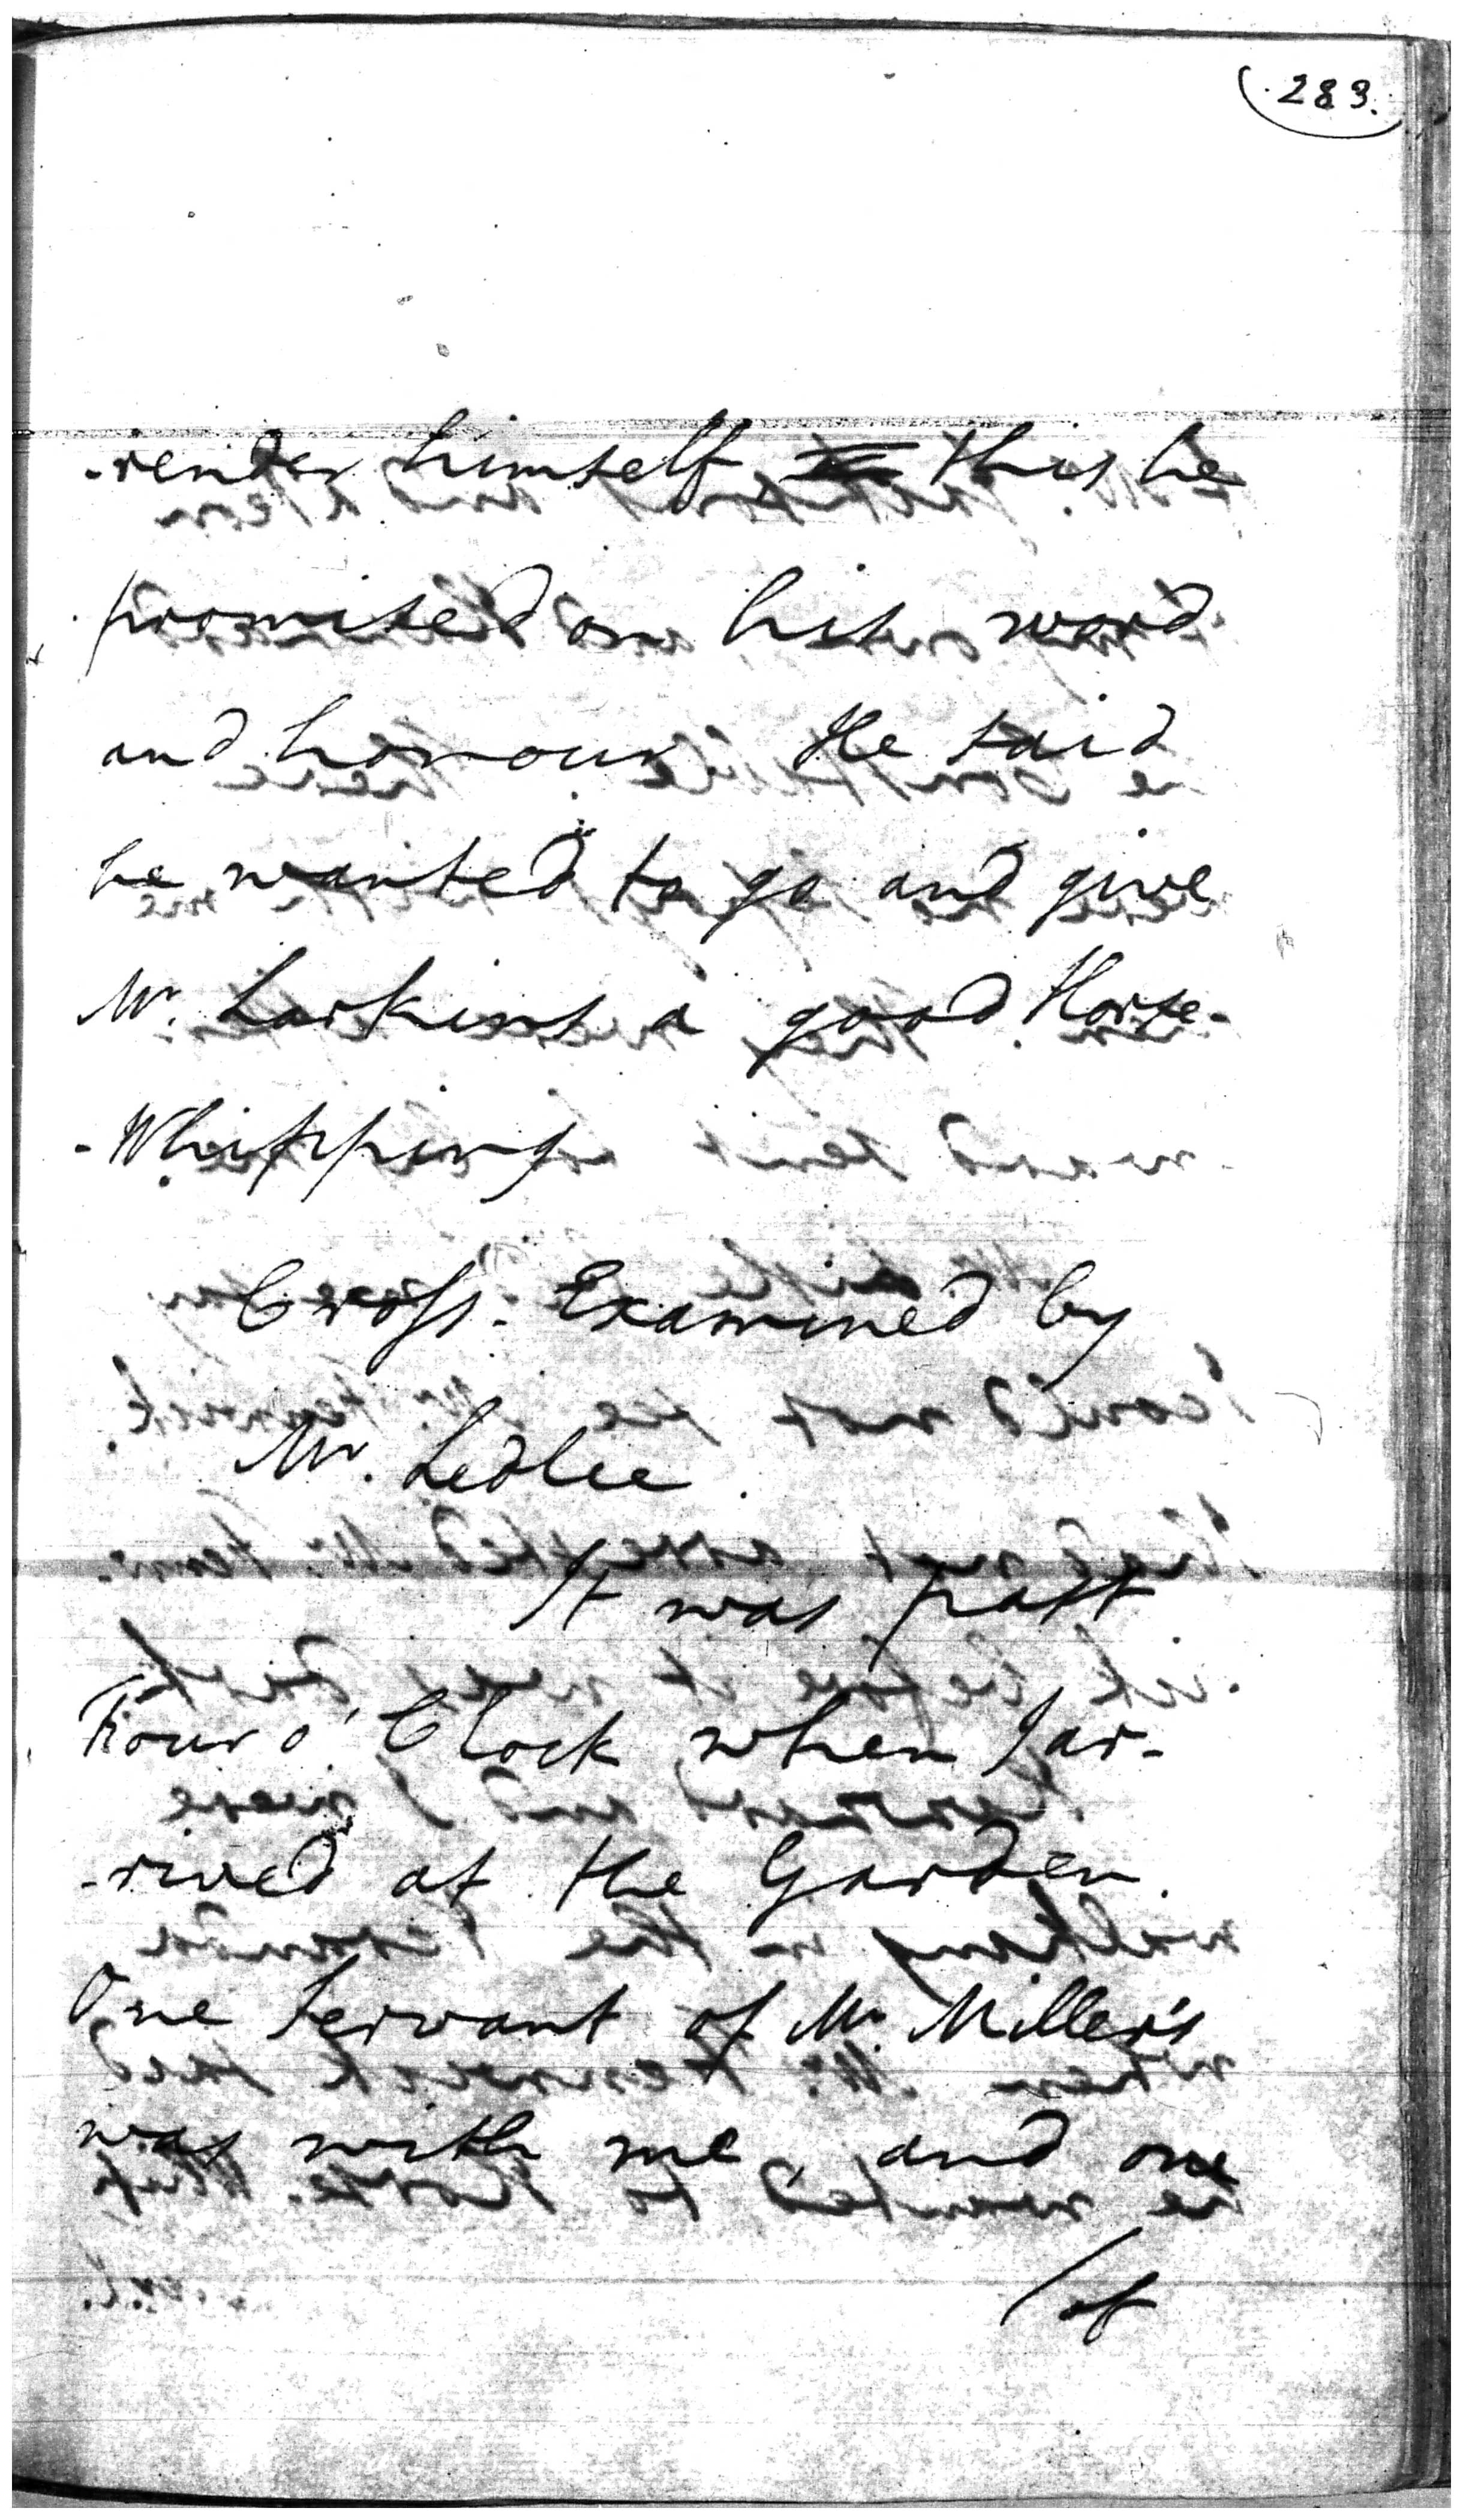 283.
-render himself this he
promised on his word
and honour He said
he wanted to go and give
Mr. Larkins a good Horse-
-Whipping
Cross-Examined by
Mr. Ledlie.
It was past
Four o'Clock when I ar-
-rived at the Garden.
One Servant of Mr. Miller's
was with me, and one
/of